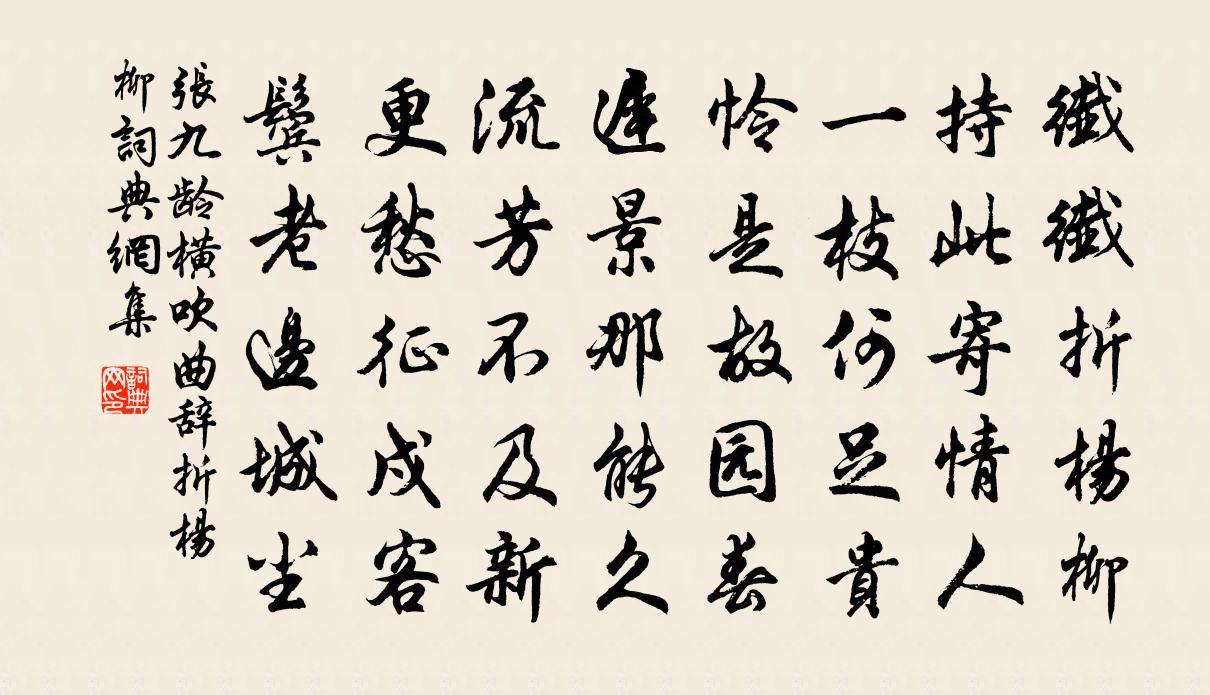 纖纖折楊柳
持此寄情人
一枝何足貴
怜是故园春
遲景那能久
流芳不及新
更愁征戍客
鬓老邊城尘
張九龄橫吹曲辞折楊
柳詞典網集
詞典网印